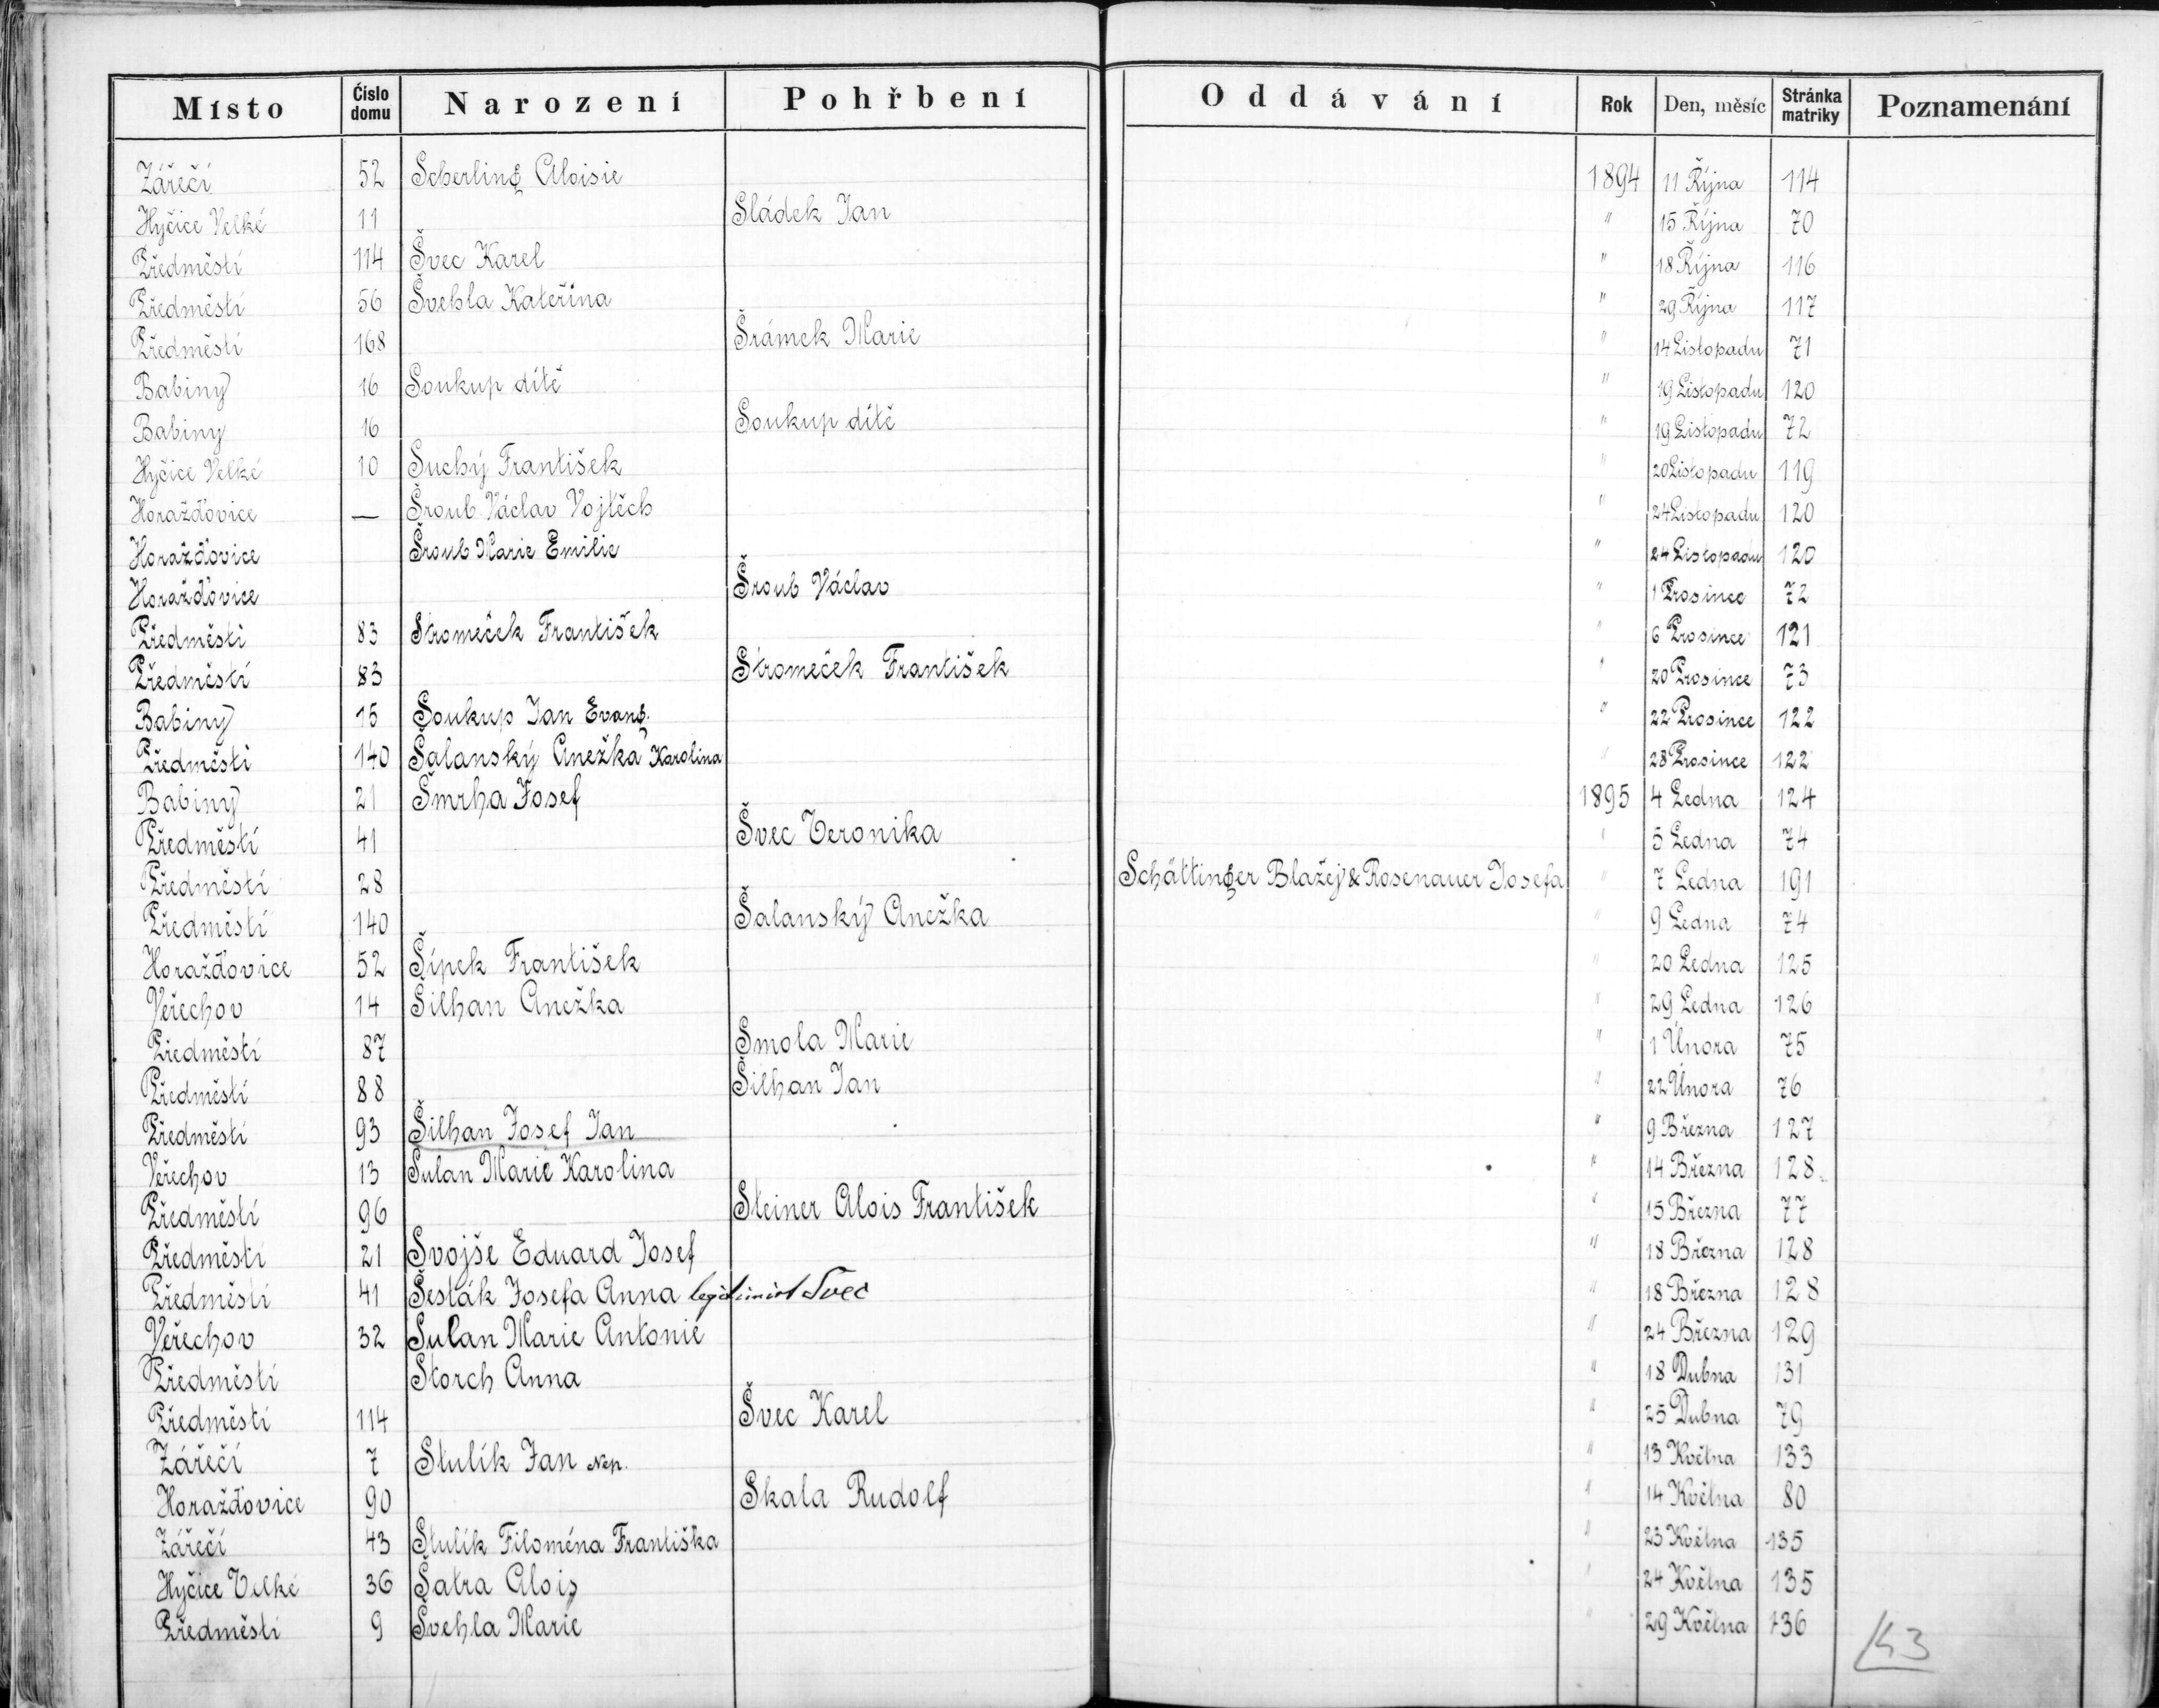 Místo Číslo domu Narození Pohřbení Oddávání Rok Den, měsíc Stránka matriky Poznamenání
Zářečí 52 Scherling Aloisie 1894 11 Října 114
Hyčice Velké 11 Sládek Jan " 15 Října 70
Předměstí 114 Švec Karel " 18 Října 116
Předměstí 56 Švehla Kateřina " 29 Října 117
Předměstí 168 Šrámek Marie " 14 Listopadu 71
Babiny 16 Soukup dítě " 19 Listopadu 120
Babiny 16 Soukup dítě " 19 Listopadu 72
Hyčice Velké 10 Suchý František " 20 Listopadu 119
Horažďovice — Šroub Václav Vojtěch " 24 Listopadu 120
Horažďovice Šroub Marie Emilie " 24 Listopadu 120
Horažďovice Šroub Václav " 1 Prosince 72
Předměstí 83 Stromeček František " 6 Prosince 121
Předměstí 83 Stromeček František " 20 Prosince 73
Babiny 15 Soukup Jan Evang. " 22 Prosince 122
Předměstí 140 Šalanský Anežka Karolina " 28 Prosince 122
Babiny 21 Šmrha Josef 1895 4 Ledna 124
Předměstí 41 Švec Veronika " 5 Ledna 74
Předměstí 28 Schättinger Blažej & Rosenauer Josefa " 7 Ledna 191
Předměstí 140 Šalanský Anežka " 9 Ledna 74
Horažďovice 52 Šípek František " 20 Ledna 125
Veřechov 14 Šilhan Anežka " 29 Ledna 126
Předměstí 87 Smola Marie " 1 Února 75
Předměstí 88 Šilhan Jan " 22 Února 76
Předměstí 93 Šilhan Josef Jan " 9 Března 127
Veřechov 13 Šulan Marie Karolina " 14 Března 128
Předměstí 96 Steiner Alois František " 15 Března 77
Předměstí 21 Svojše Eduard Josef " 18 Března 128
Předměstí 41 Šesták Josefa Anna legitimist Švec " 18 Března 128
Veřechov 32 Šulan Marie Antonie " 24 Března 129
Předměstí Storch Anna " 18 Dubna 131
Předměstí 114 Švec Karel " 25 Dubna 79
Zářečí 7 Stulík Jan Nep. " 13 Května 133
Horažďovice 90 Skala Rudolf " 14 Května 80
Zářečí 43 Stulík Filoména Františka " 23 Května 135
Hyčice Velké 36 Šatra Alois " 24 Května 135
Předměstí 9 Švehla Marie " 29 Května 136
43